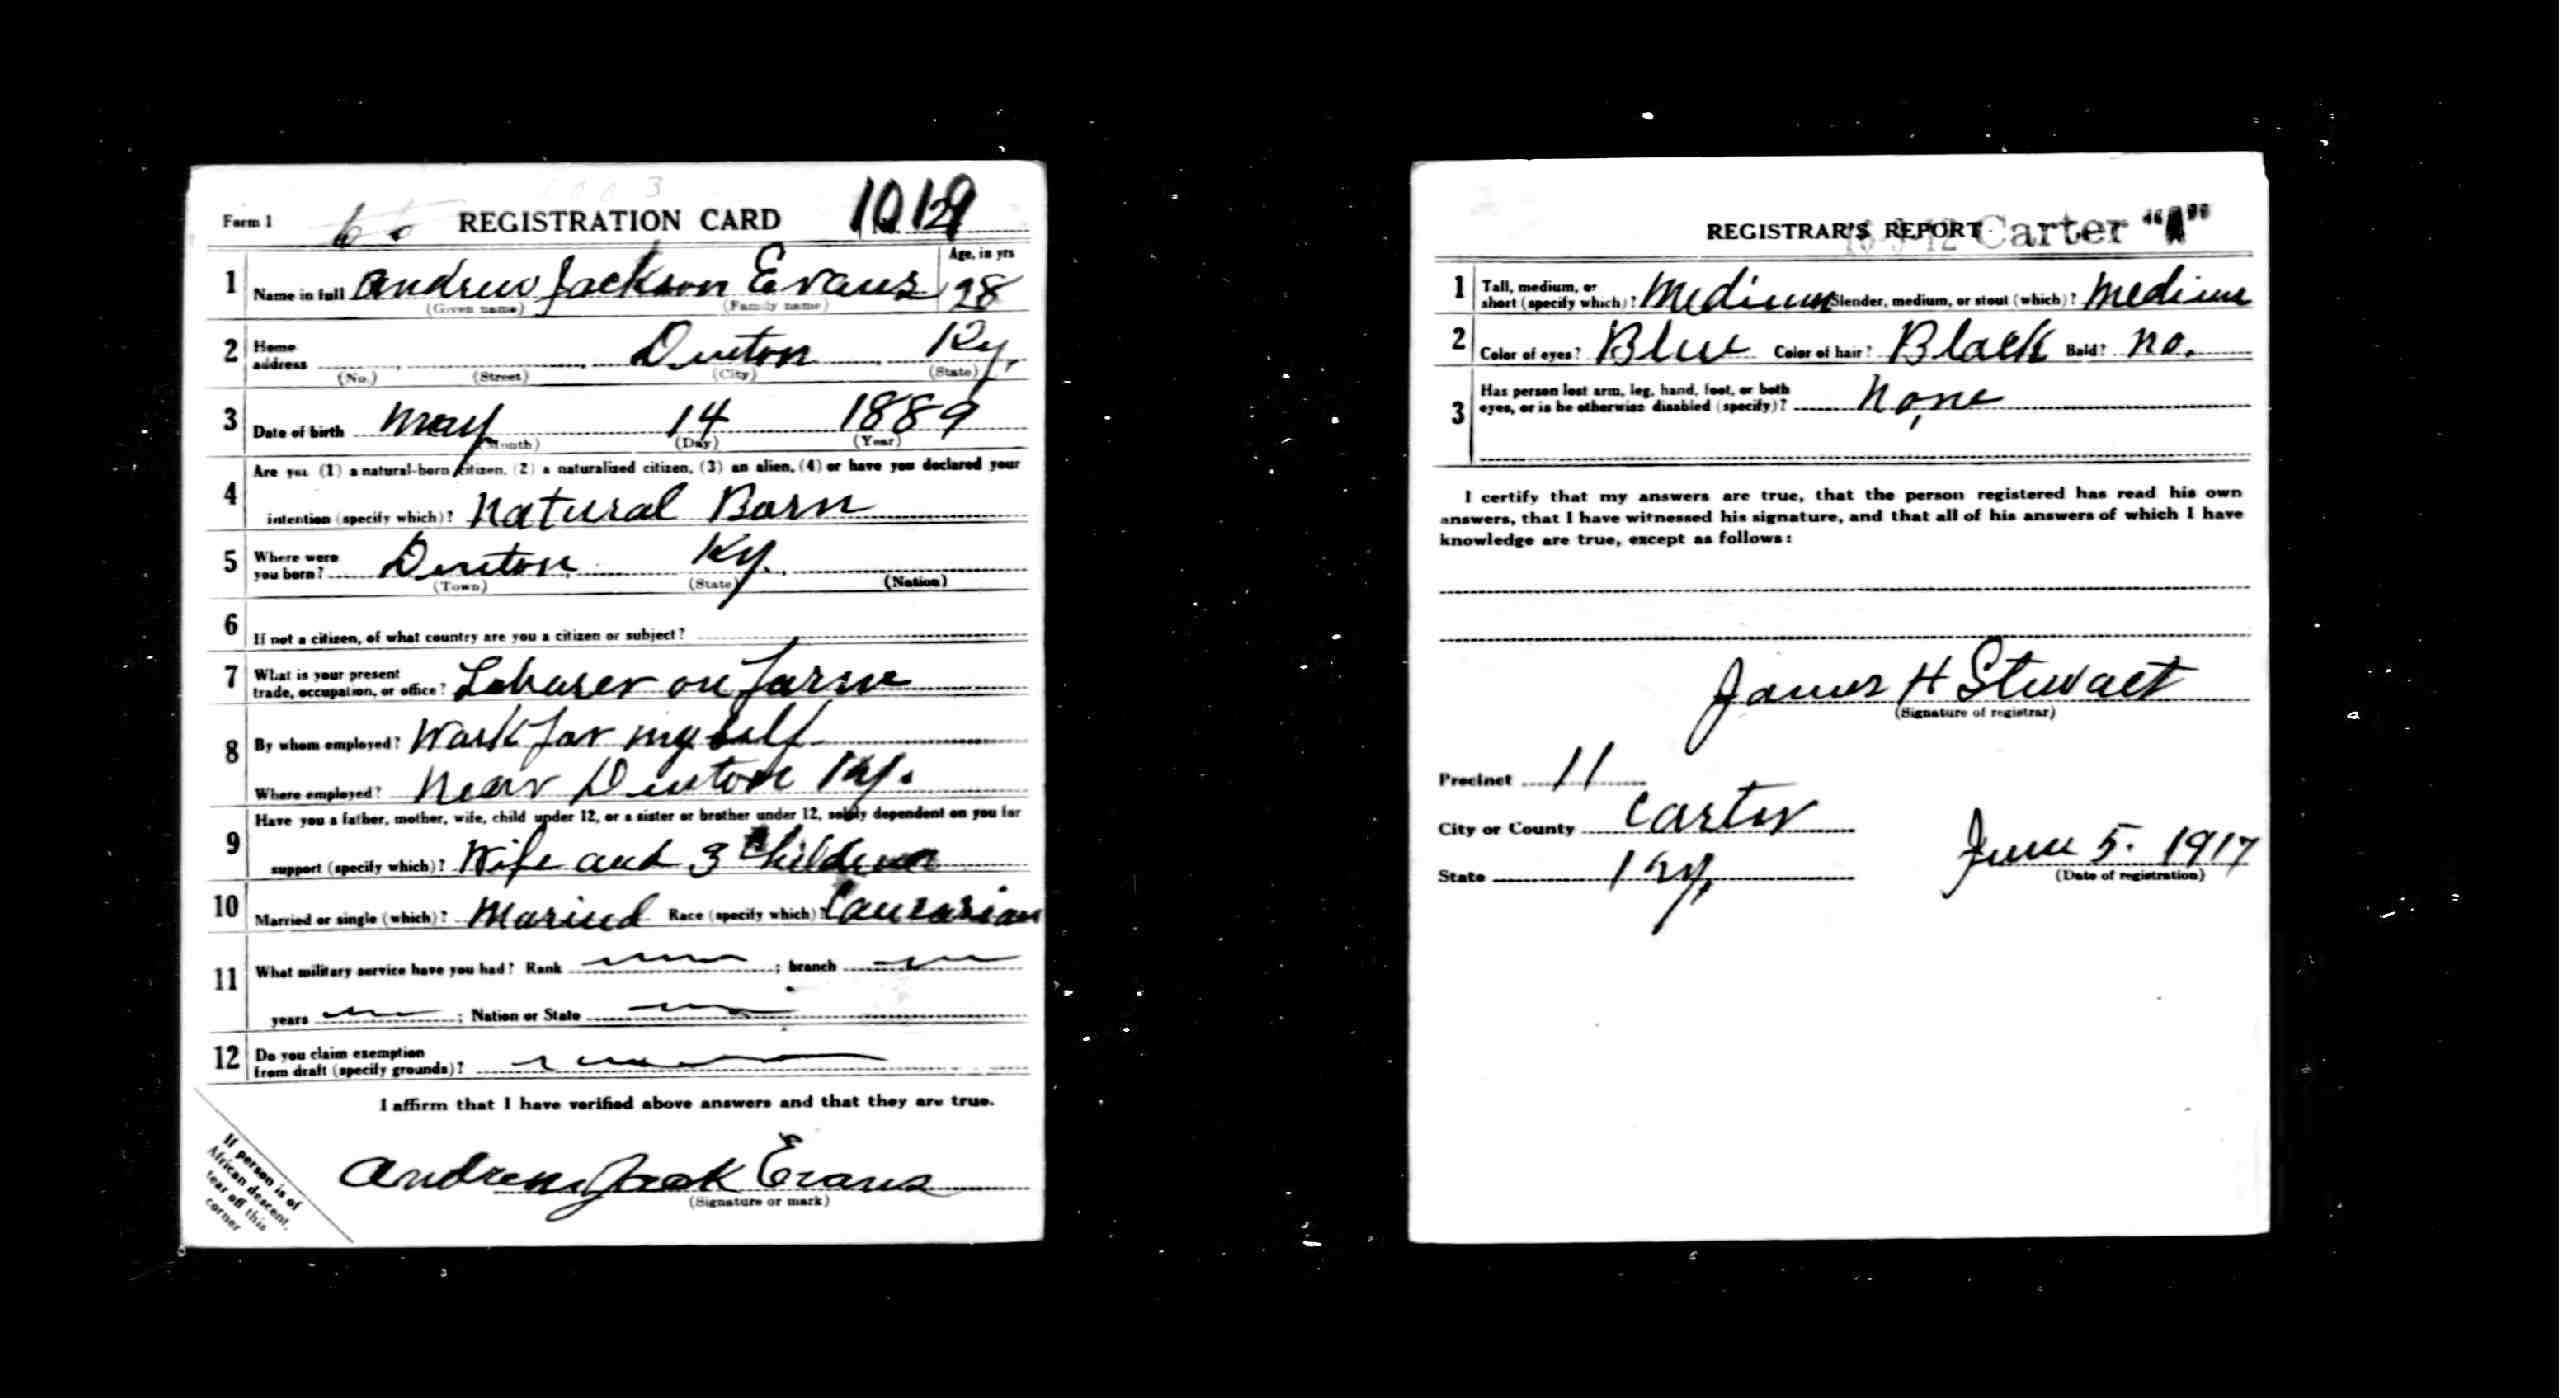 Form 1 REGISTRATION CARD
1 Name in full Andrew Jackson Evans Age, in yrs 28
(Given name) (Family name)
2 Home address Denton Ky.
(No.) (Street) (City) (State)
3 Date of birth May 14 1889
(Month) (Day) (Year)
4 Are you (1) a natural-born citizen, (2) a naturalized citizen, (3) an alien, (4) or have you declared your
intention (specify which)? Natural Born
5 Where were you born? Denton Ky.
(Town) (State) (Nation)
6 If not a citizen, of what country are you a citizen or subject?
7 What is your present trade, occupation, or office? Laborer on Farm
8 By whom employed? Work for my self
Where employed? Near Denton Ky.
9 Have you a father, mother, wife, child under 12, or a sister or brother under 12, solely dependent on you for
support (specify which)? Wife and 3 Children
10 Married or single (which)? Married Race (specify which)? Caucasian
11 What military service have you had? Rank ; branch
years ; Nation or State
12 Do you claim exemption from draft (specify grounds)?
I affirm that I have verified above answers and that they are true.
Andrew Jack Evans
(Signature or mark)
If person is of
African descent,
tear off this
corner
REGISTRAR'S REPORT Carter "A"
1 Tall, medium, or short (specify which)? Medium Slender, medium, or stout (which)? Medium
2 Color of eyes? Blue Color of hair? Black Bald? No.
3 Has person lost arm, leg, hand, foot, or both eyes, or is he otherwise disabled (specify)? None
I certify that my answers are true, that the person registered has read his own
answers, that I have witnessed his signature, and that all of his answers of which I have
knowledge are true, except as follows:
James H Stewart
(Signature of registrar)
Precinct 11
City or County Carter
State Ky.
June 5. 1917
(Date of registration)